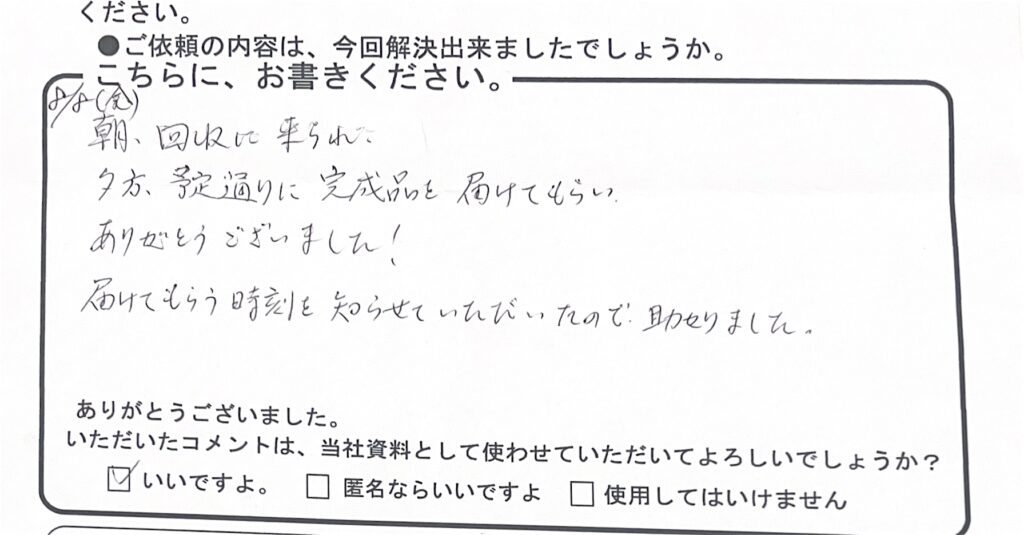 ください。
●ご依頼の内容は、今回解決出来ましたでしょうか。
こちらに、お書きください。
(金)
朝、回収に来られた
夕方、予定通りに完成品を届けてもらい
ありがとうございました!
届けてもらう時刻を知らせていただいたので助かりました。
ありがとうございました。
いただいたコメントは、当社資料として使わせていただいてよろしいでしょうか?
☑いいですよ。 □匿名ならいいですよ □使用してはいけません